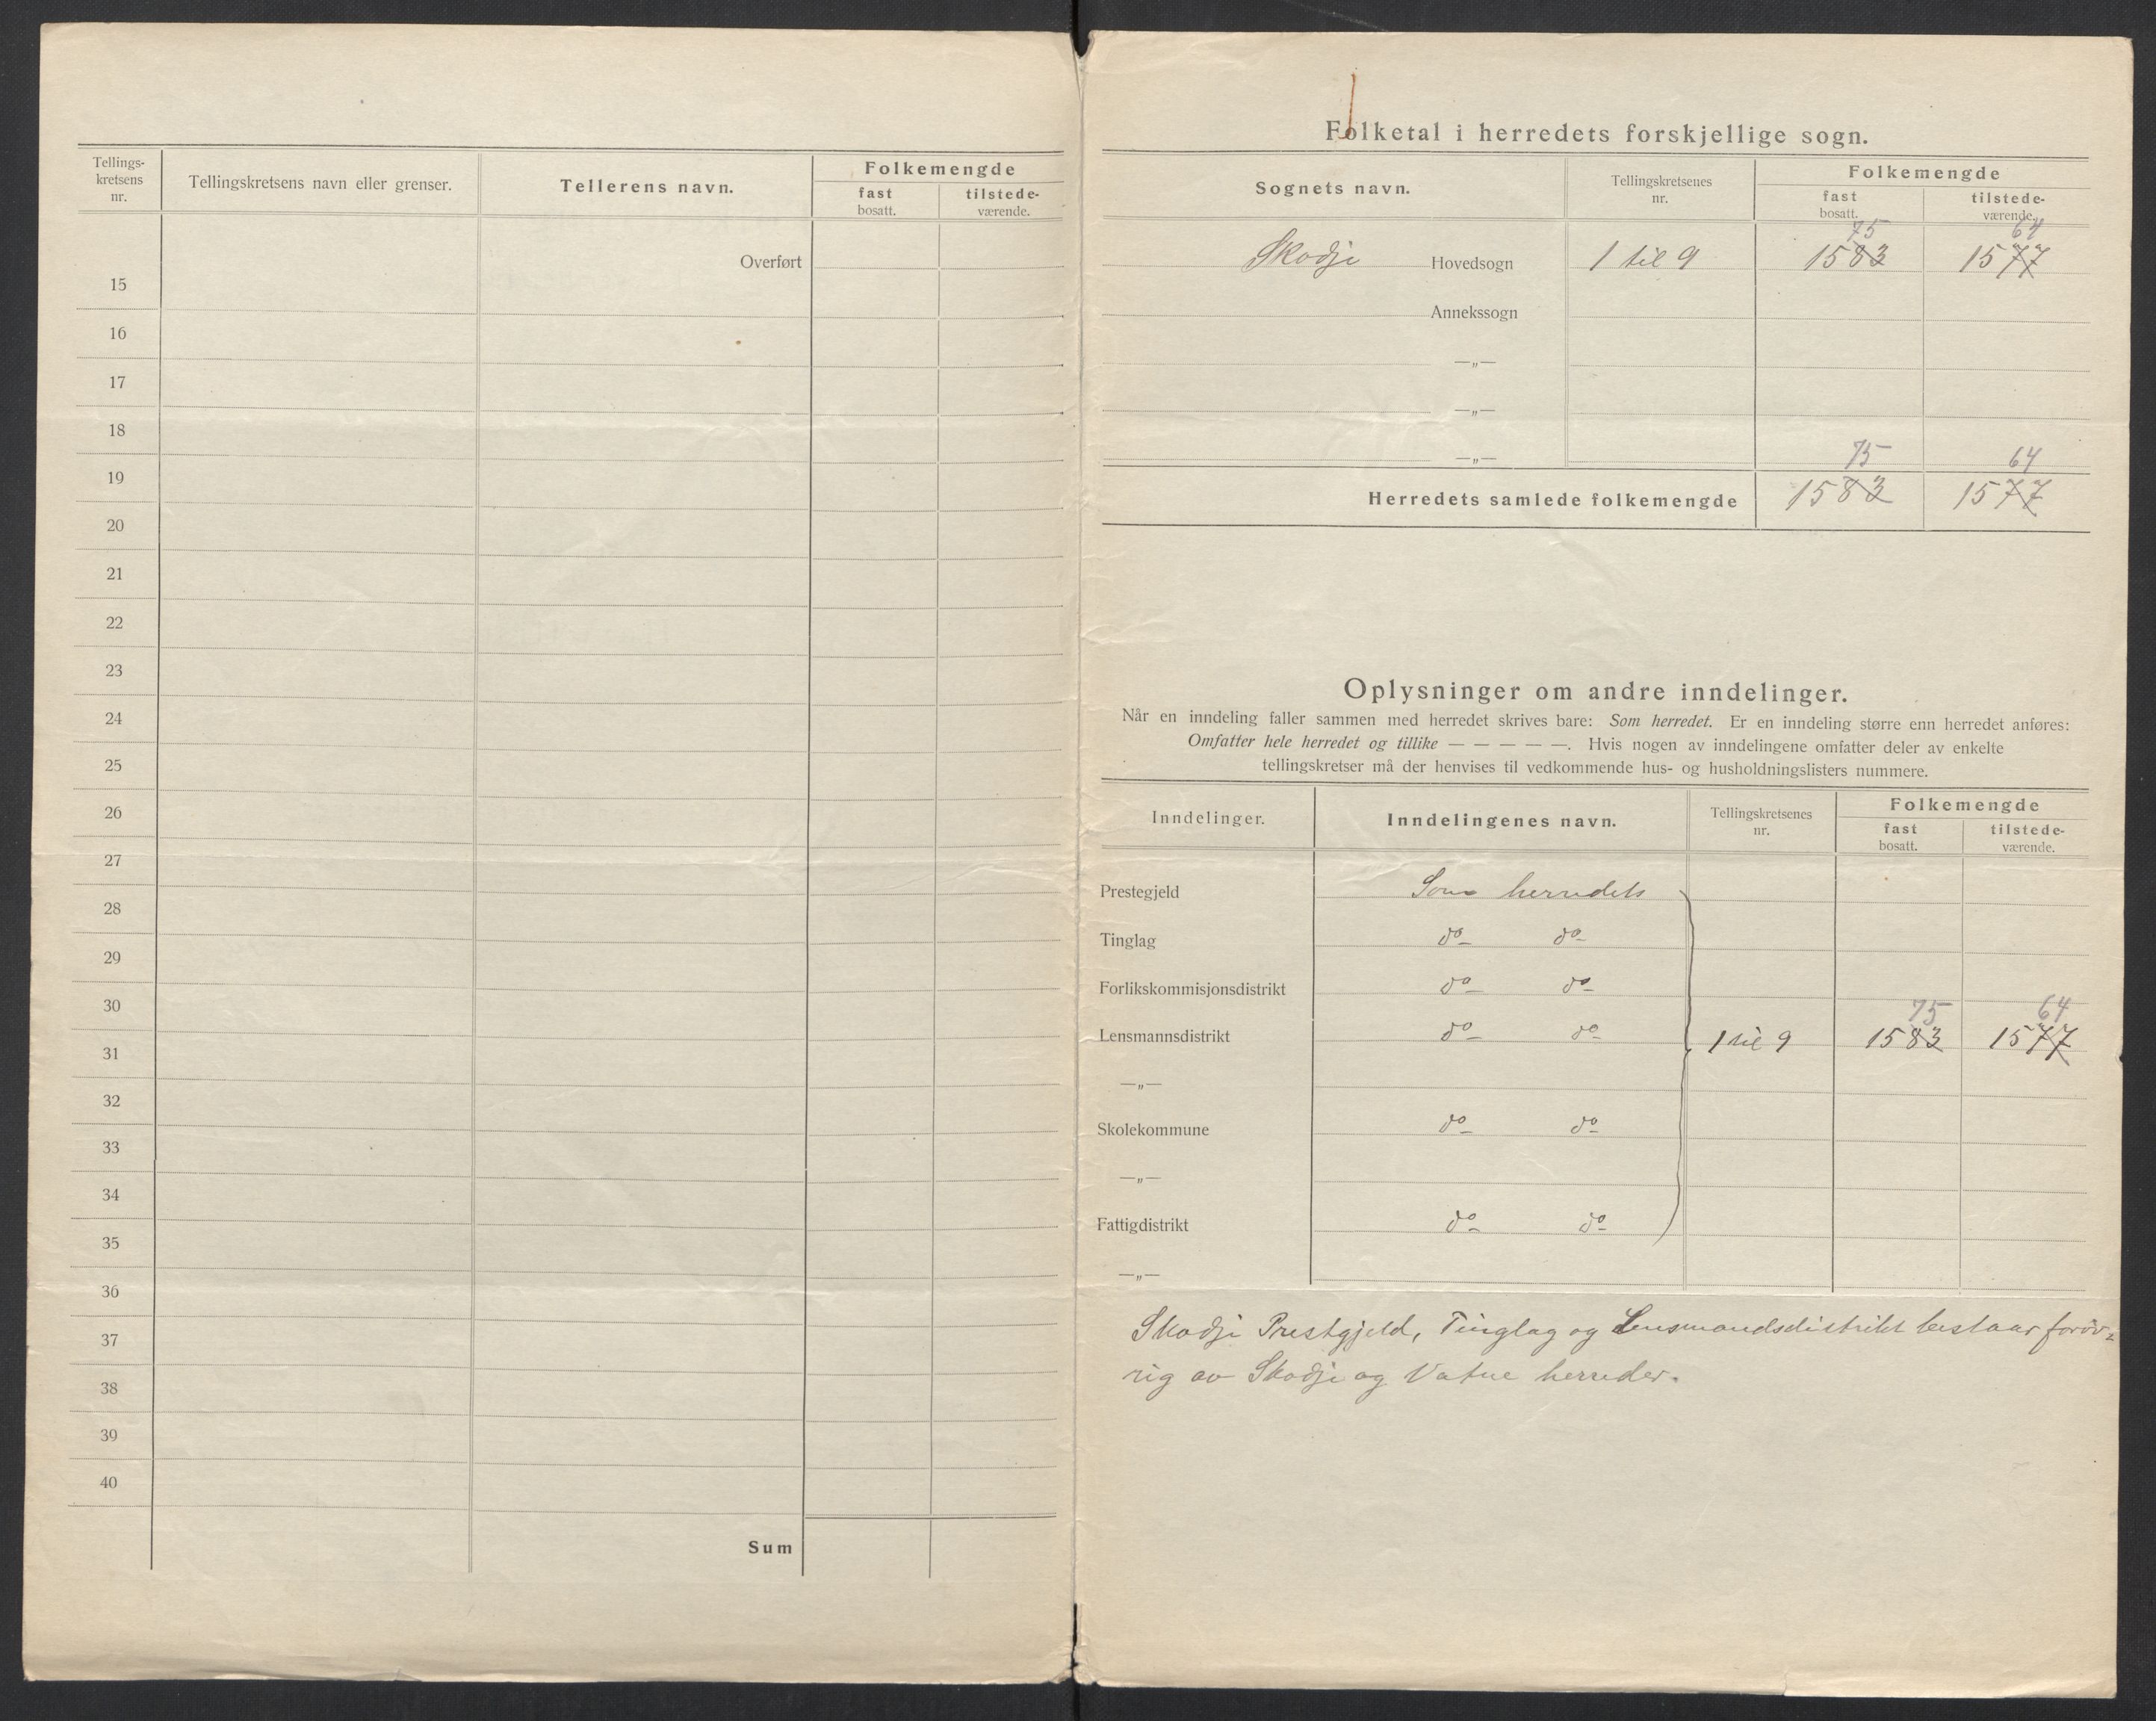 Tellings-
kretsens
nr.
Tellingskretsens navn eller grenser.
Tellerens navn.
Folkemengde
fast
bosatt.
tilstede-
værende.
Overført
15
16
17
18
19
20
21
22
23
24
25
26
27
28
29
30
31
32
33
34
35
36
37
38
39
40
Sum
Folketal i herredets forskjellige sogn.
Sognets navn.
Tellingskretsenes
nr.
Folkemengde
fast
bosatt.
tilstede-
værende.
75 64
Skodje Hovedsogn 1 til 9 1583 1577
Annekssogn
—„—
—„—
—„—
75 64
Herredets samlede folkemengde 1583 1577
Oplysninger om andre inndelinger.
Når en inndeling faller sammen med herredet skrives bare: Som herredet. Er en inndeling større enn herredet anføres:
Omfatter hele herredet og tillike — — — — —. Hvis nogen av inndelingene omfatter deler av enkelte
tellingskretser må der henvises til vedkommende hus- og husholdningslisters nummere.
Inndelinger.
Inndelingenes navn.
Tellingskretsenes
nr.
Folkemengde
fast
bosatt.
tilstede-
værende.
Prestegjeld Som herredets
Tinglag do do
Forlikskommisjonsdistrikt do do
75 64
Lensmannsdistrikt do do 1 til 9 1583 1577
—„—
Skolekommune do do
—„—
Fattigdistrikt do do
—„—
Skodje Prestgjeld, Tinglag og Lensmandsdistrikt bestaar forøv-
rig av Skodje og Vatne herreder.